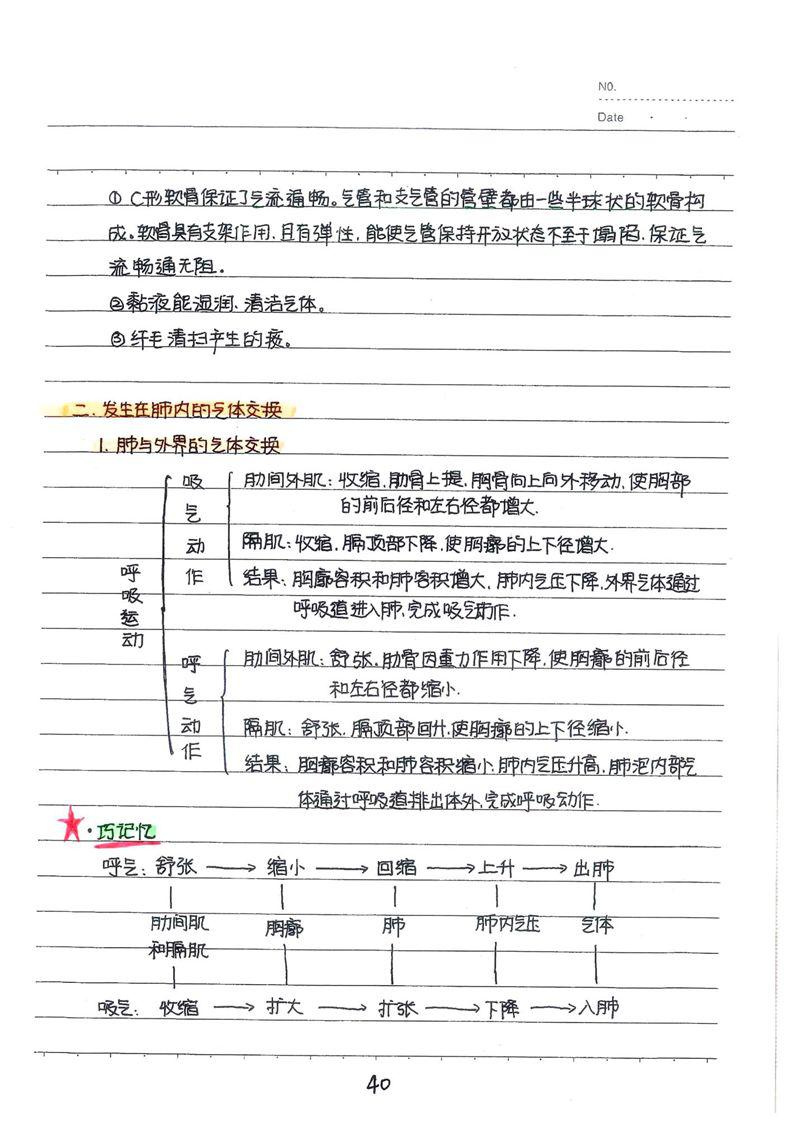 NO.
Date
① C形软骨保证了气流通畅。气管和支气管的管壁都由一些半球状的软骨构
成。软骨具有支架作用,且有弹性,能使气管保持开放状态不至于塌陷,保证气
流畅通无阻。
②黏液能湿润、清洁气体。
③纤毛清扫产生的痰。
二.发生在肺内的气体交换
1.肺与外界的气体交换
呼吸运动
吸气动作
肋间外肌:收缩,肋骨上提,胸骨向上向外移动,使胸部
的前后径和左右径都增大.
隔肌:收缩,膈顶部下降,使胸廓的上下径增大.
结果:胸廓容积和肺容积增大,肺内气压下降,外界气体通过
呼吸道进入肺,完成吸气动作.
呼气动作
肋间外肌:舒张,肋骨因重力作用下降,使胸廓的前后径
和左右径都缩小.
隔肌:舒张,膈顶部回升,使胸廓的上下径缩小.
结果:胸廓容积和肺容积缩小,肺内气压升高,肺泡内部气
体通过呼吸道排出体外,完成呼吸动作.
★·巧记忆
呼气:舒张 → 缩小 → 回缩 → 上升 → 出肺
肋间肌 胸廓 肺 肺内气压 气体
和膈肌
吸气:收缩 → 扩大 → 扩张 → 下降 → 入肺
40